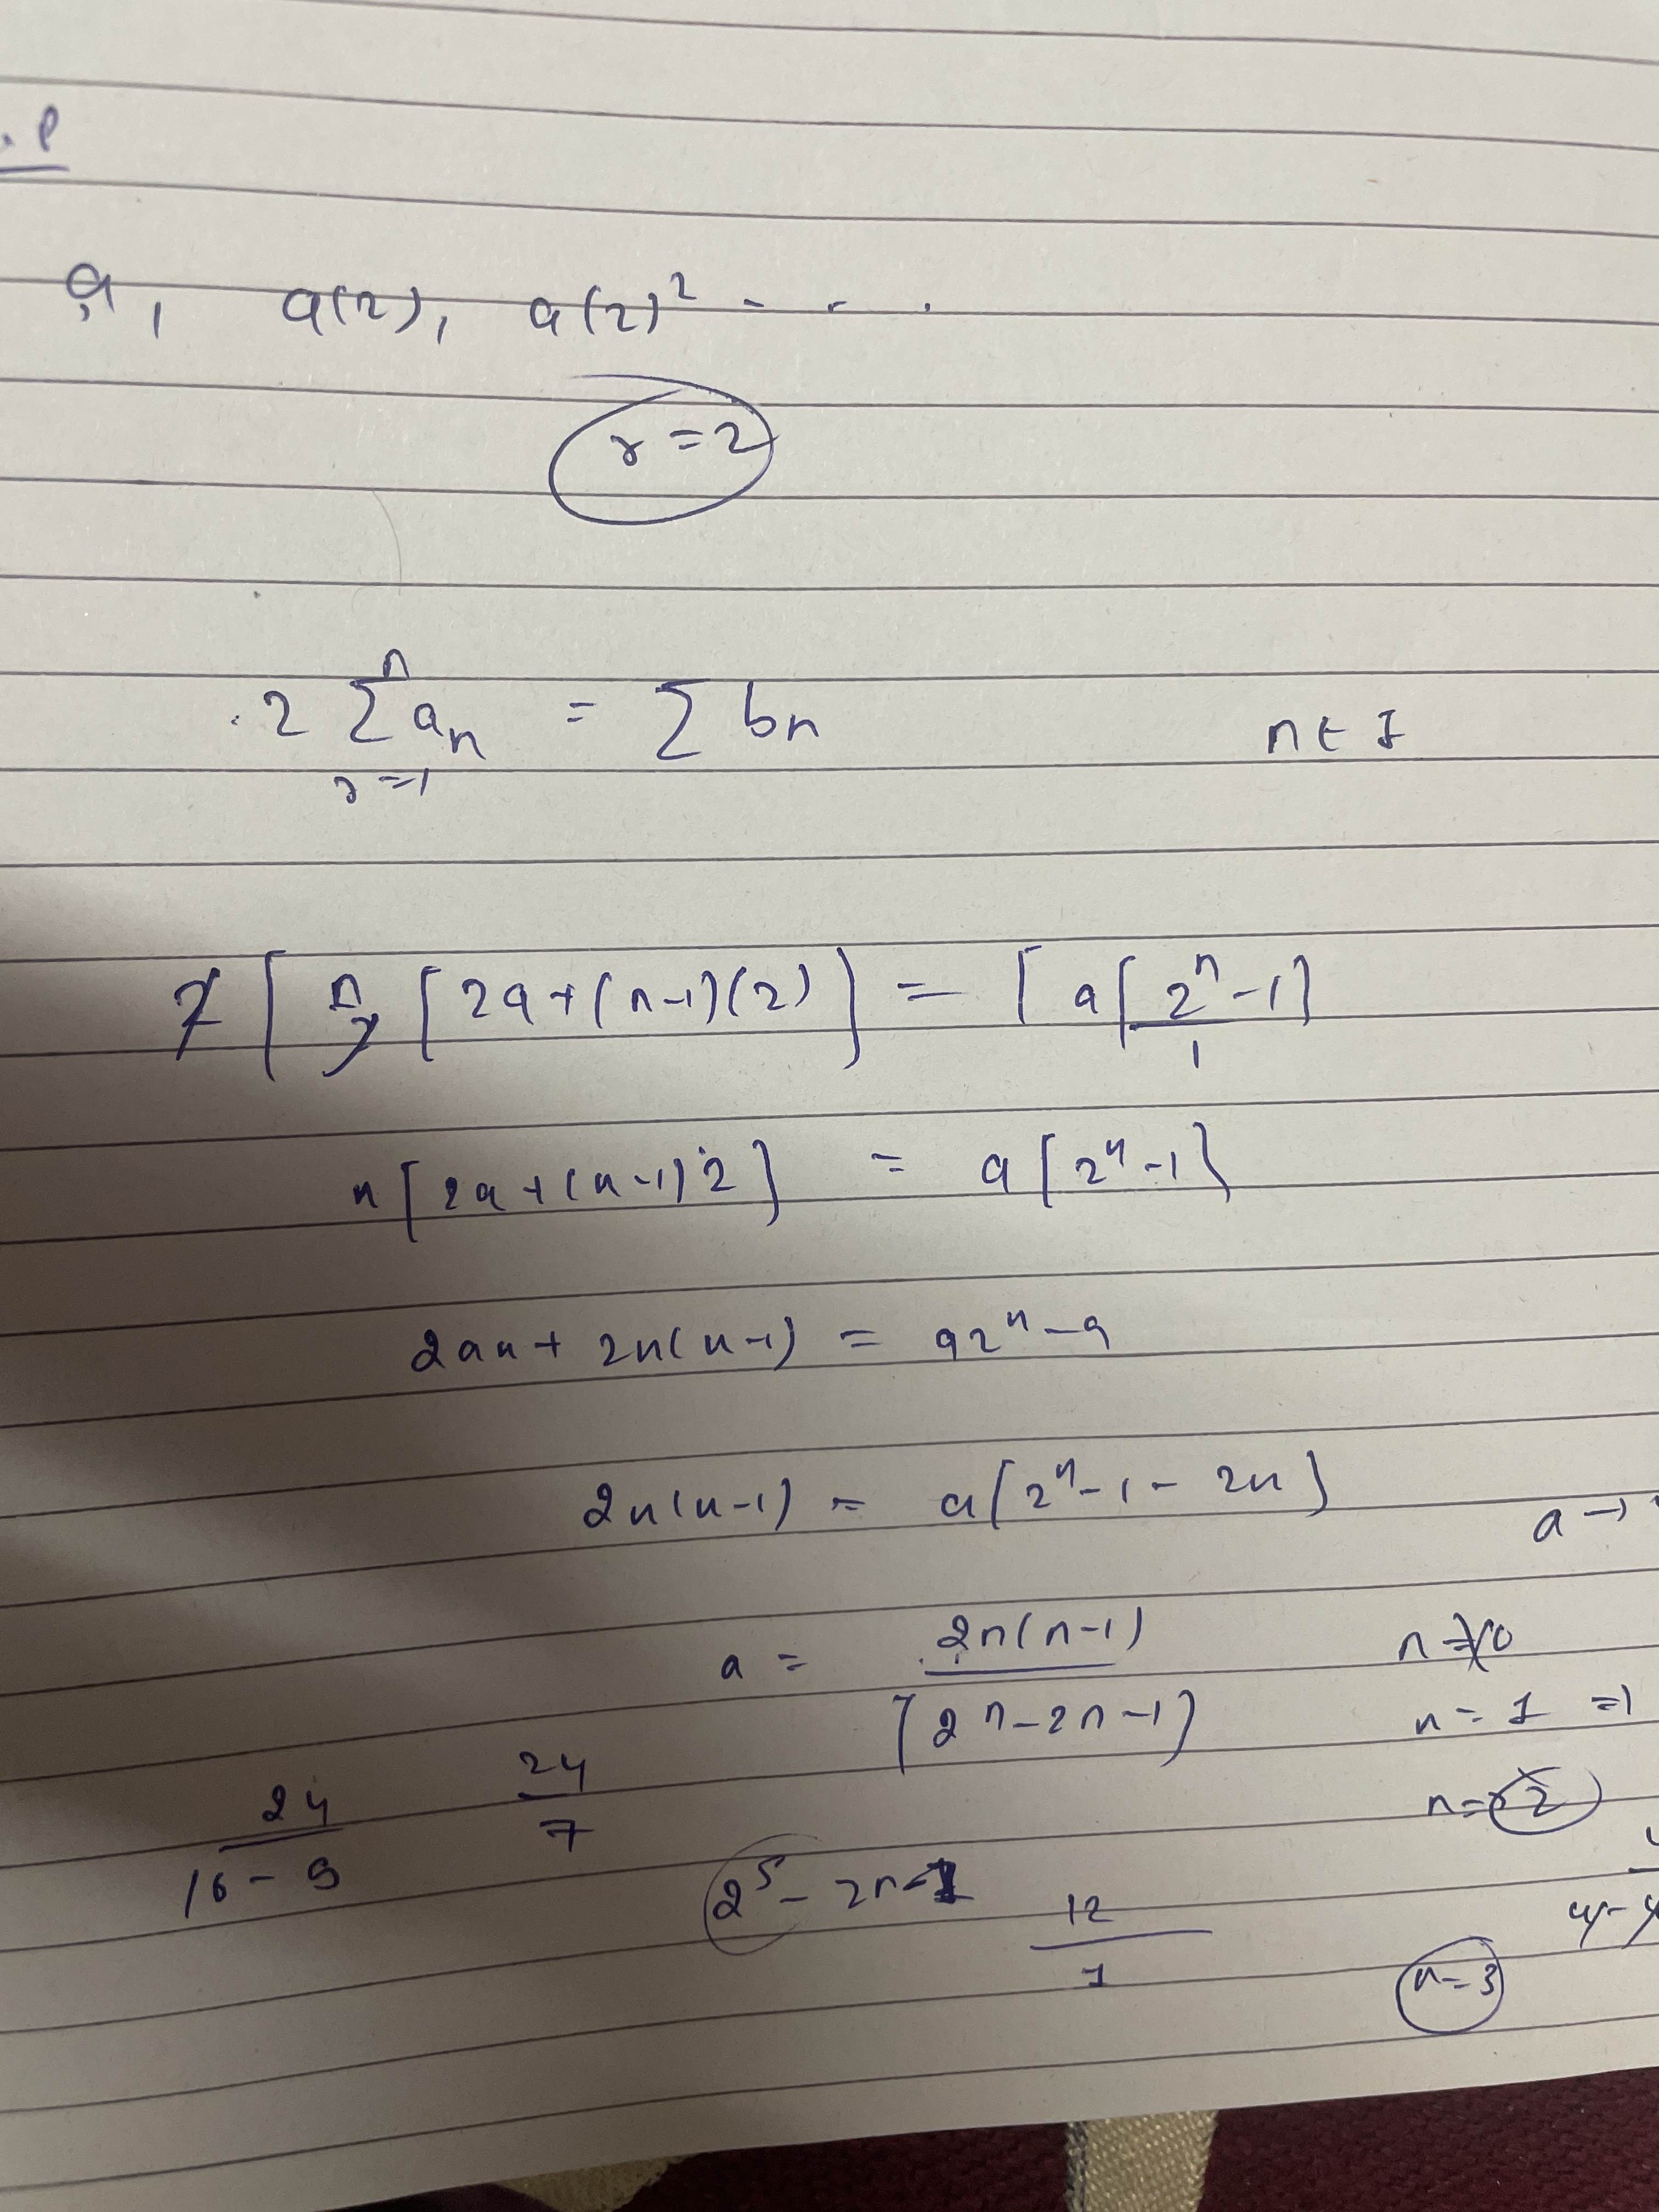 . P
a, a(2), a(2)² - - .
r = 2
2 Σ aₙ = Σ bₙ n ∈ I
n
r=1
2 [ n/2 [ 2a + (n-1)(2) ] = [ a [ 2ⁿ - 1 ]
1
n [ 2a + (n-1) 2 ] = a [ 2ⁿ - 1 ]
2an + 2n(n-1) = a2ⁿ - a
2n(n-1) = a [ 2ⁿ - 1 - 2n ]
a →
a = 2n(n-1) / [ 2ⁿ - 2n - 1 ]
n = 0
n = 1 =1
n = 2
24 / 16 - 9
24 / 7
2⁵ - 2n - 1
12 / 1
n = 3